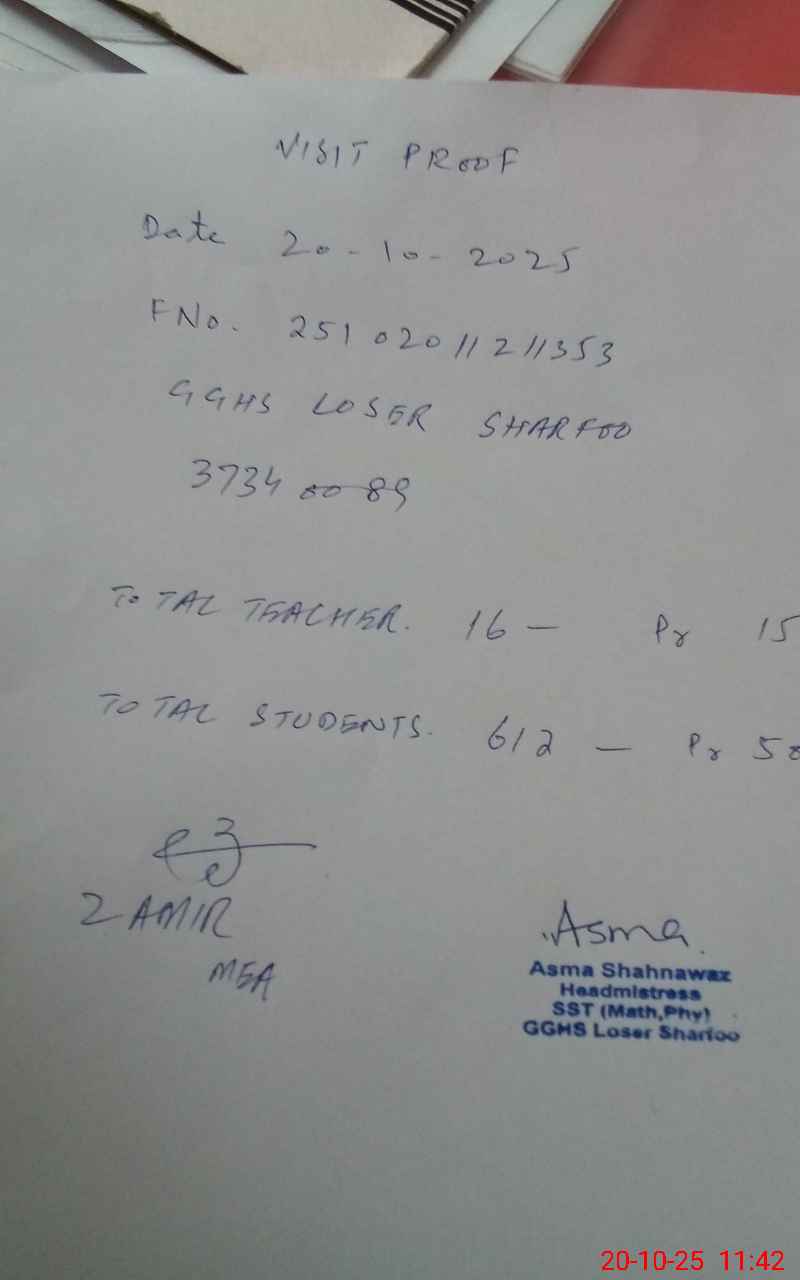 VISIT PROOF
Date 20-10-2025
FNo. 25102011211353
GGHS LOSER SHARFOO
37340089
TOTAL TEACHER. 16 — Pr 15
TOTAL STUDENTS. 612 — Pr
ZAMIR
MEA
Asma
Asma Shahnawaz
Headmistress
SST (Math,Phy)
GGHS Loser Sharfoo
20-10-25 11:42